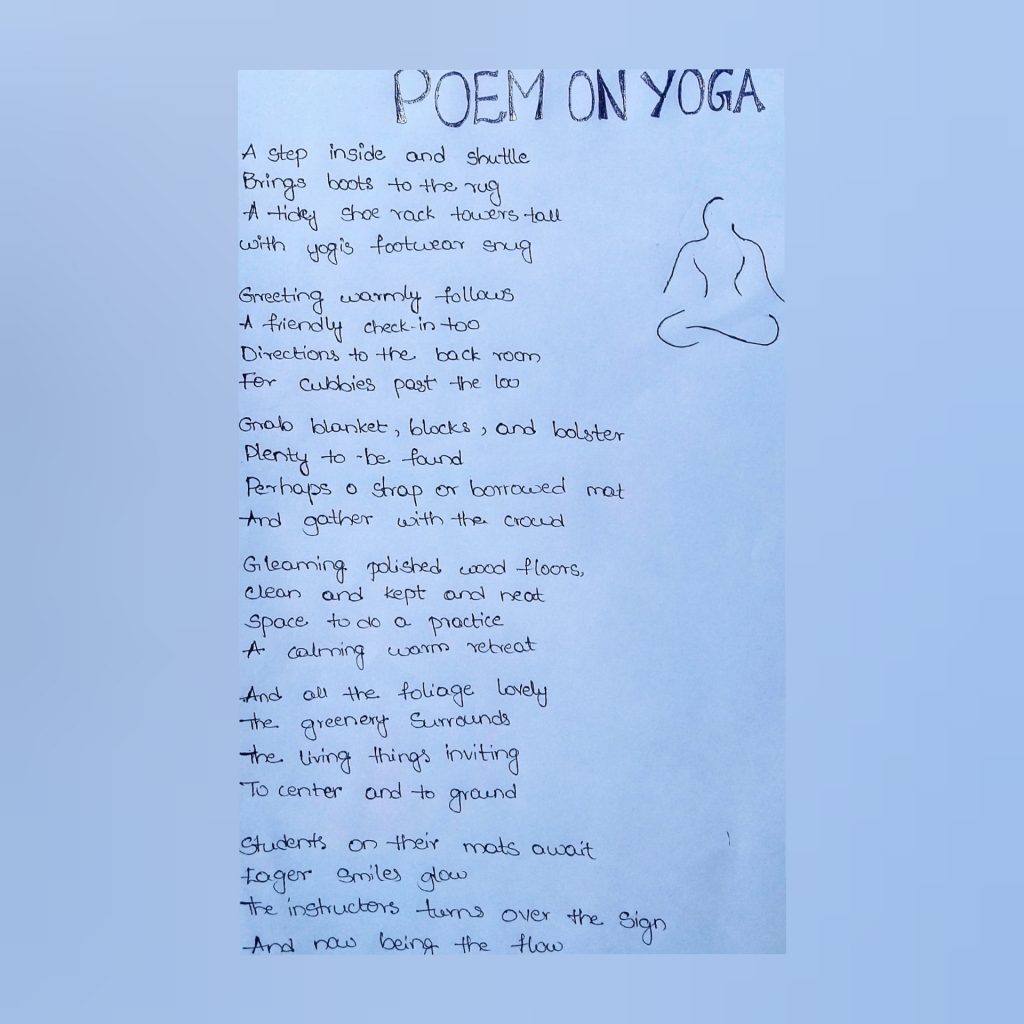 POEM ON YOGA
A step inside and shuttle
Brings boots to the rug
A tidey shoe rack towers tall
with yogis footwear snug
Greeting warmly follows
A friendly check-in too
Directions to the back room
For cubbies past the loo
Grab blanket, blocks, and bolster
Plenty to be found
Perhaps a strap or borrowed mat
And gather with the crowd
Gleaming polished wood floors,
Clean and kept and neat
Space to do a practice
A calming warm retreat
And all the foliage lovely
The greenery Surrounds
The living things inviting
To center and to ground
Students on their mats await
Eager smiles glow
The instructors turns over the Sign
And now being the flow